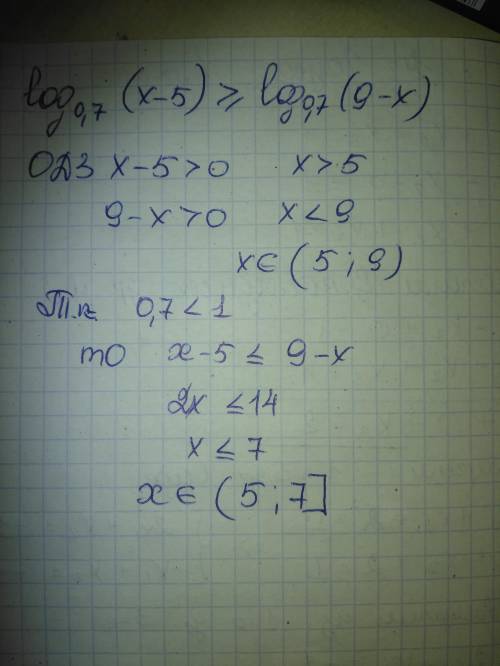 log₀,₇ (x-5) ≥ log₀,₇ (9-x)
ОДЗ x-5>0 x>5
9-x>0 x<9
x∈(5;9)
Т.к. 0,7<1
то x-5 ≤ 9-x
2x ≤14
x ≤ 7
x∈(5;7]